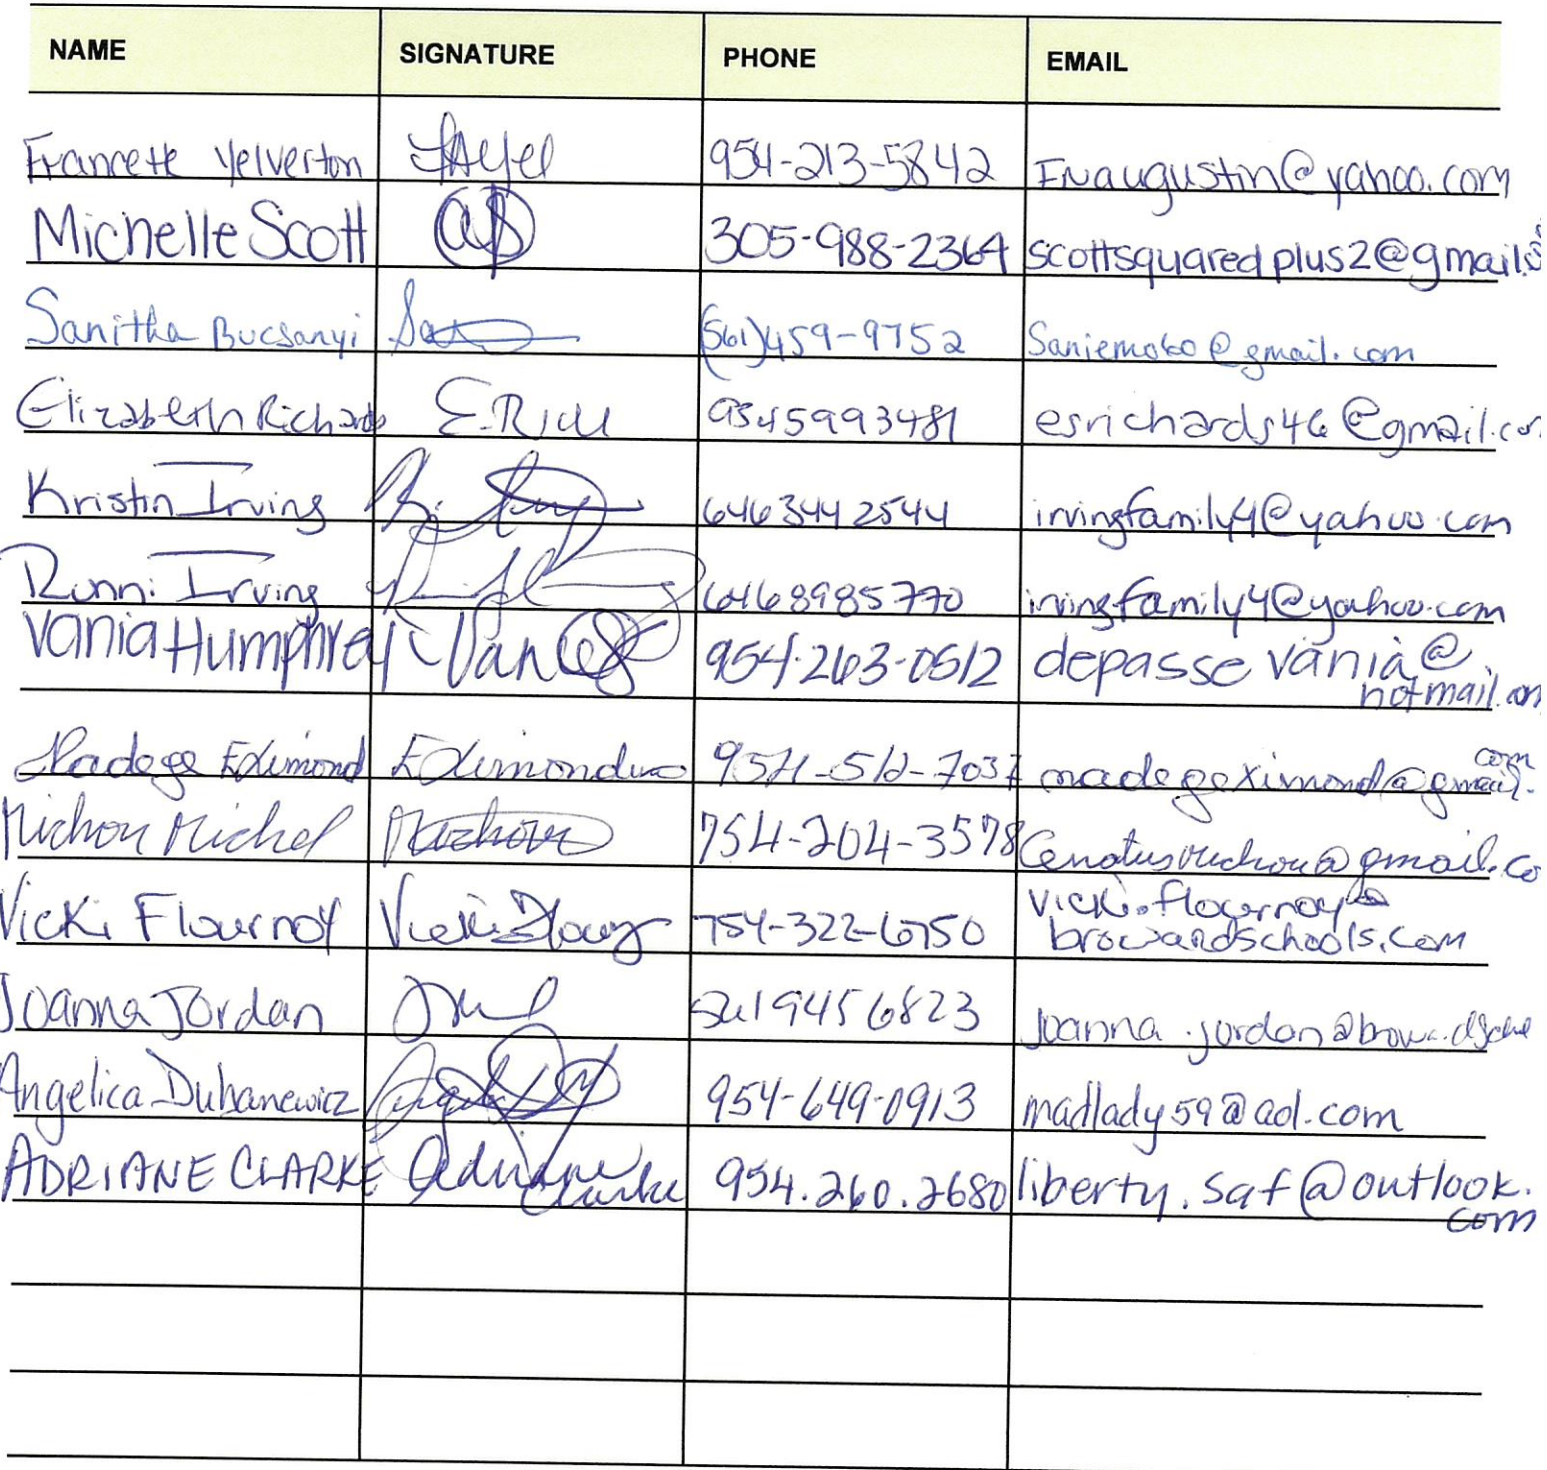 NAME SIGNATURE PHONE EMAIL
Francette Yelverton 954-213-5842 Fnaugustin@yahoo.com
Michelle Scott 305-988-2364 scottsquaredplus2@gmail.
Sanitha Bucsanyi (561)459-9752 Saniemoko@gmail.com
Elizabeth Richards E. Rich 9545993481 esrichards46@gmail.com
Kristin Irving 6463442544 irvingfamily4@yahoo.com
Ronni Irving 6468985770 irvingfamily4@yahoo.com
Vania Humphrey 954-263-0512 depasse vania@
hotmail.com
com
Nadege Eximond 954-512-7037 nadegeximond@gmail.
Michou Michel Michou 754-204-3578 Cenatusmichou@gmail.co
Vicki.flournoy@
Vicki Flournoy 754-322-6750 browardschools.com
Joanna Jordan 5619456823 Joanna.jordan@
Angelica Duhanewicz 954-649-0913 madlady59@aol.com
ADRIANE CLARKE Adriane 954.260.2680 liberty.saf@outlook.
Clarke com